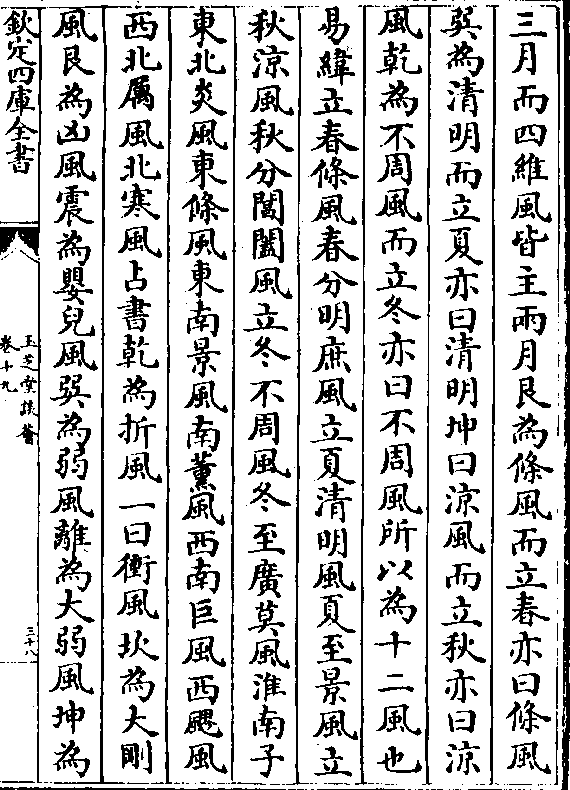 三月而四維風皆主兩月艮為條風而立春亦曰條風
巽為清明而立夏亦曰清明坤曰涼風而立秋亦曰涼
風乾為不周風而立冬亦曰不周風所以為十二風也
易緯立春條風春分明庶風立夏清明風夏至景風立
秋涼風秋分閶闔風立冬不周風冬至廣莫風淮南子
東北炎風東條風東南景風南薰風西南巨風西飂風
西北厲風北寒風占書乾為折風一曰衝風坎為大剛
風艮為凶風震為嬰兒風巽為弱風離為大弱風坤為
欽定四庫全書
玉芝堂談薈
卷十九
三十八